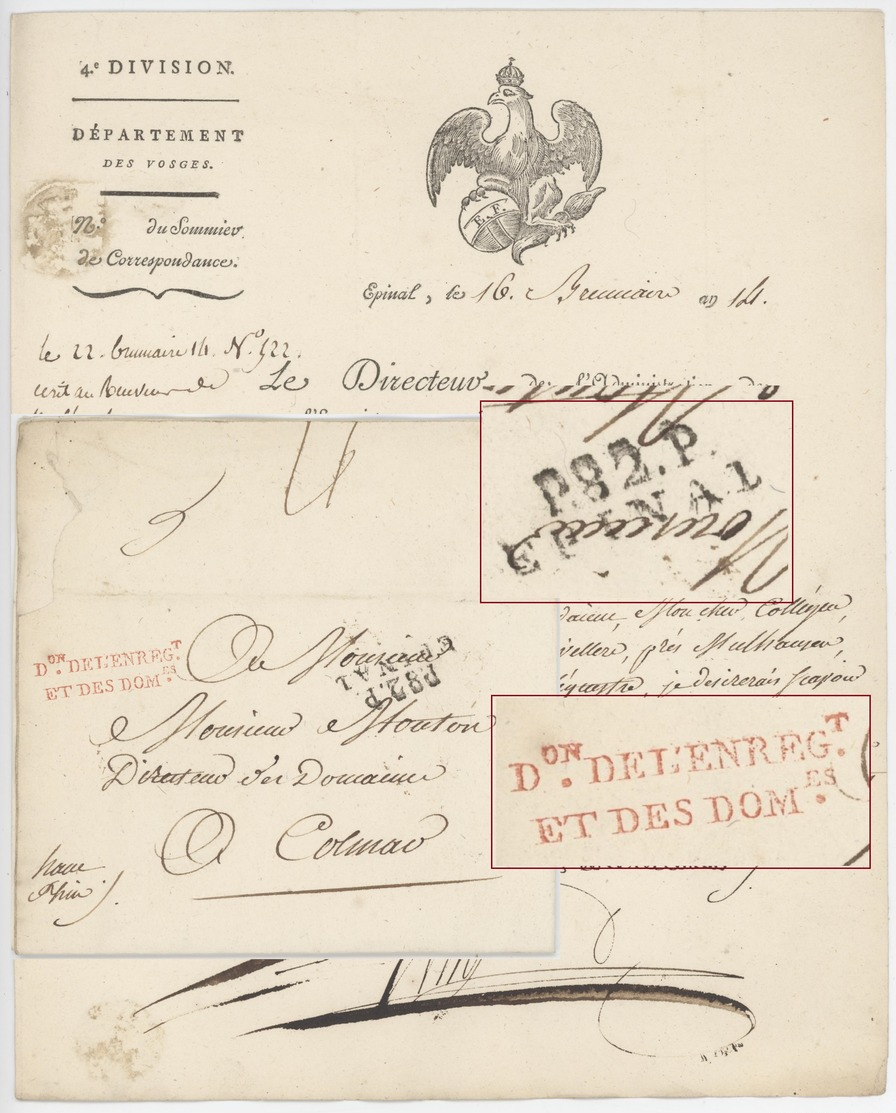 4.e DIVISION.
DÉPARTEMENT
DES VOSGES.
N.o du Sommier
de Correspondance.
E.F.
Epinal, le 16. Brumaire an 14.
le 22. brumaire 14. No 522.
Le Directeur de l'Administration des
P.82.P.
EPINAL
Monsieur
mon cher Collègue,
près Mulhausen,
je desirerais sçavoir
DON. DE L'ENREG.T
ET DES DOM.ES
A Monsieur
P82.P.
EPINAL
Monsieur Mouton
Directeur des Domaines
A Colmar
haut
Rhin
DON. DE L'ENREG.T
ET DES DOM.ES